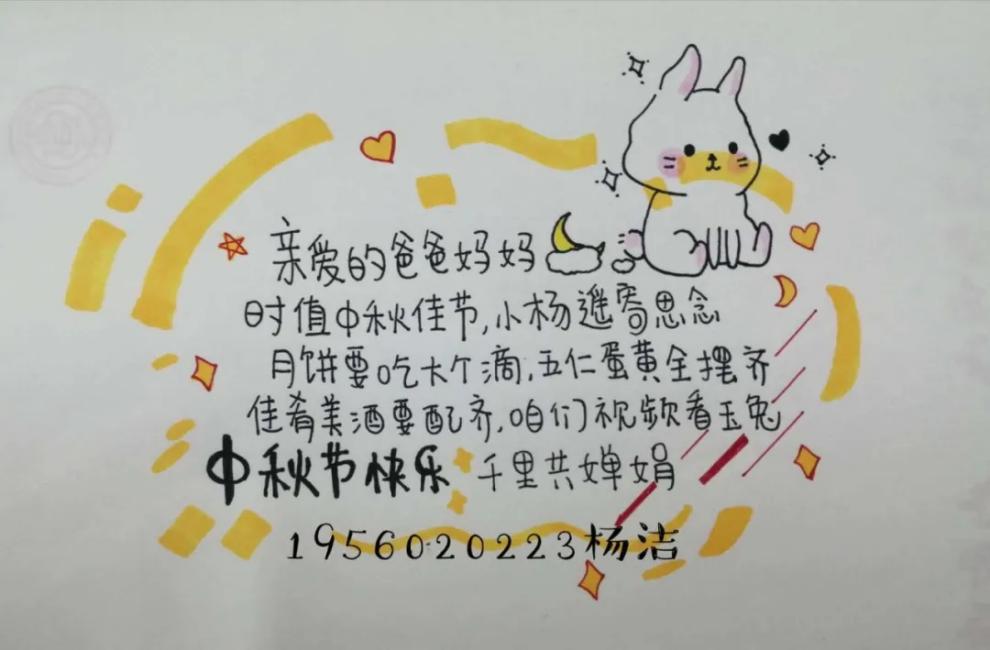 亲爱的爸爸妈妈
时值中秋佳节,小杨遥寄思念
月饼要吃大个滴,五仁蛋黄全摆齐
佳肴美酒要配齐,咱们视频看玉兔
中秋节快乐 千里共婵娟
1956020223杨洁